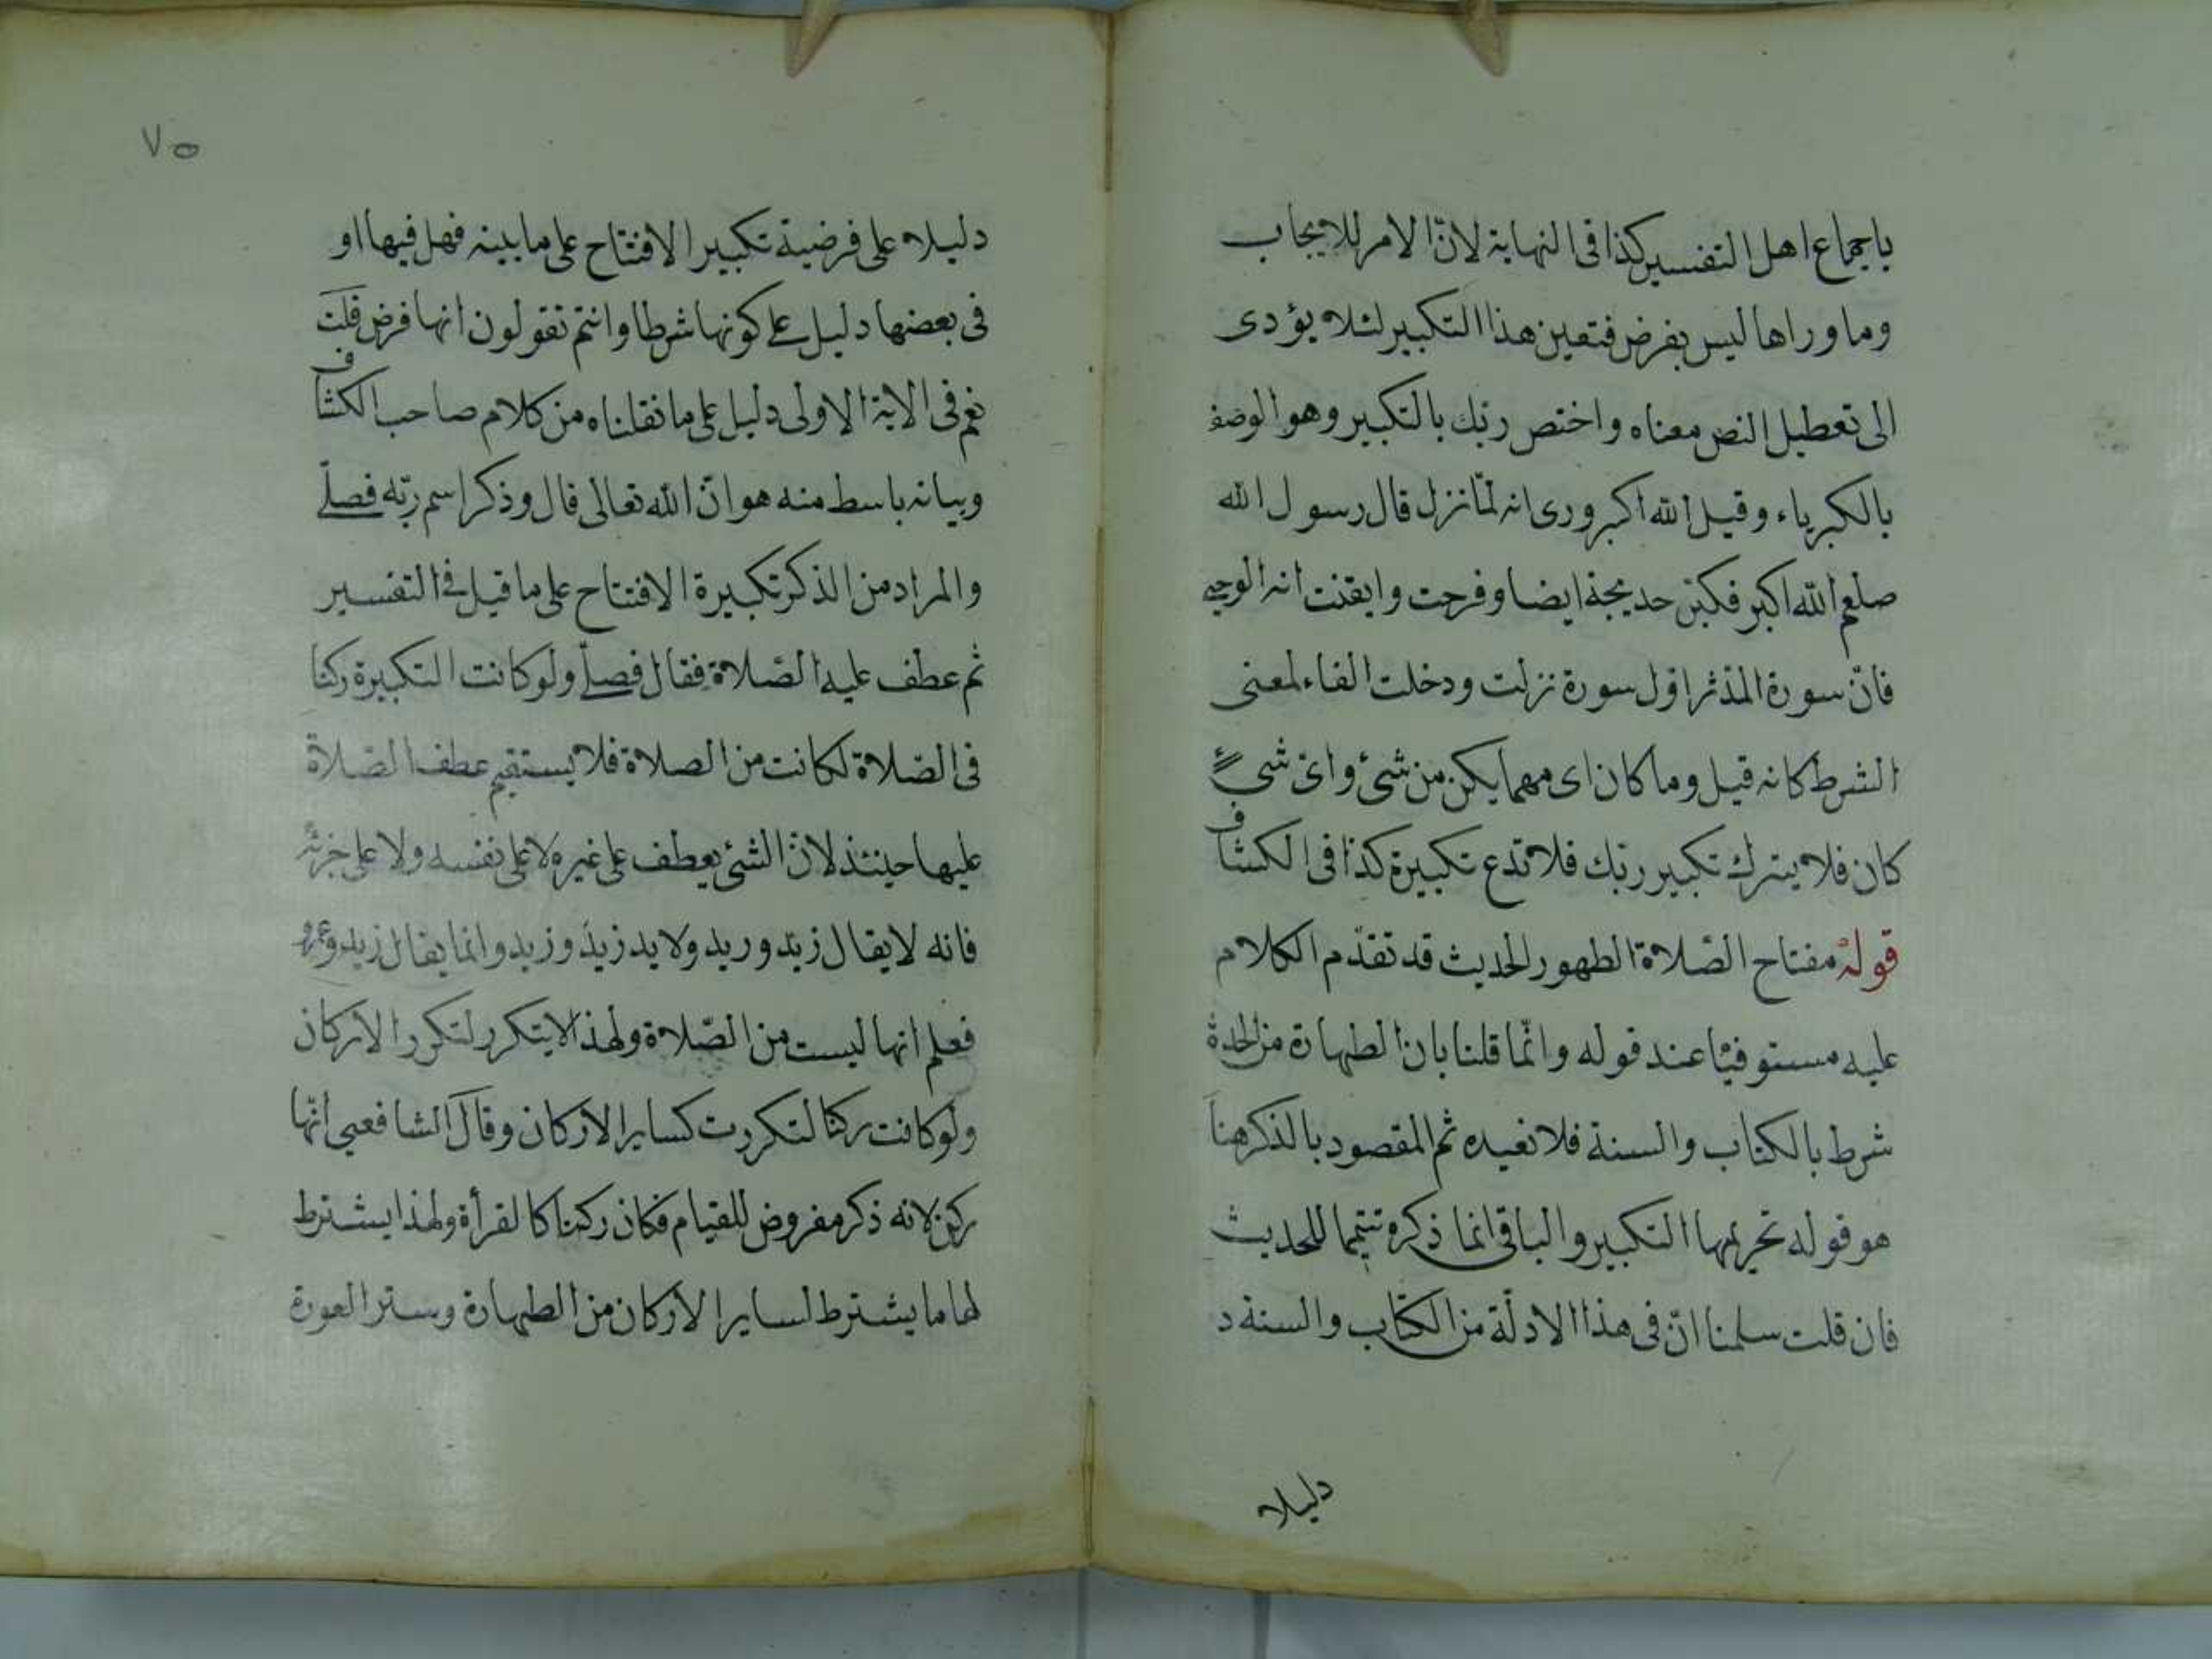 باجماع اهل التفسير كذا فى النهاية لانّ الامر للايجاب
وما وراها ليس بفرض فتعين هذا التكبير لئلا يؤدى
الى تعطيل النص معناه واختص ربك بالتكبير وهو الوصف
بالكبرياء وقيل الله اكبر وروى انه لمّا نزل قال رسول الله
صلعم الله اكبر فكبرت خديجة ايضا وفرحت وايقنت انه الوحى
فانّ سورة المدّثر اوّل سورة نزلت ودخلت الفاء لمعنى
الشرط كانه قيل وما كان اى مهما يكن من شئ واىّ شئ
كان فلا يترك تكبير ربك فلا تدع تكبيرة كذا فى الكشاف
قوله مفتاح الصّلاة الطهور الحديث قد تقدّم الكلام
عليه مستوفيًا عند قوله وانّما قلنا بان الطهارة من الحدث
شرط بالكتاب والسنة فلا نعيده ثم المقصود بالذكر هنا
هو قوله تحريمها التكبير والباقى انما ذكره تتميما للحديث
فان قلت سلمنا انّ فى هذا الادلّة من الكتاب والسنة د
دليلا
٧٥
دليلا على فرضية تكبير الافتتاح على ما بينه فهل فيها او
فى بعضها دليل على كونها شرطا وانتم تقولون انها فرض قلت
نعم فى الاية الاولى دليل على ما نقلناه من كلام صاحب الكشاف
وبيانه باسط منه هو انّ الله تعالى قال وذكر اسم ربّه فصلّى
والمراد من الذكر تكبيرة الافتتاح على ما قيل فى التفسير
ثم عطف عليه الصّلاة فقال فصلّى ولو كانت التكبيرة ركنا
فى الصّلاة لكانت من الصلاة فلا يستقيم عطف الصّلاة
عليها حينئذ لانّ الشئ يعطف على غيره لا على نفسه ولا على جزئه
فانه لا يقال زيد وريد ولا يد زيد وزيد وانما يقال زيد وعمرو
فعلم انها ليست من الصّلاة ولهذا لا يتكرر لتكرر الاركان
ولو كانت ركنا لتكررت كساير الاركان وقال الشافعى انّها
ركن لانه ذكر مفروض للقيام فكان ركنا كالقرأة ولهذا يشترط
لها ما يشترط لساير الاركان من الطهارة وستر العورة